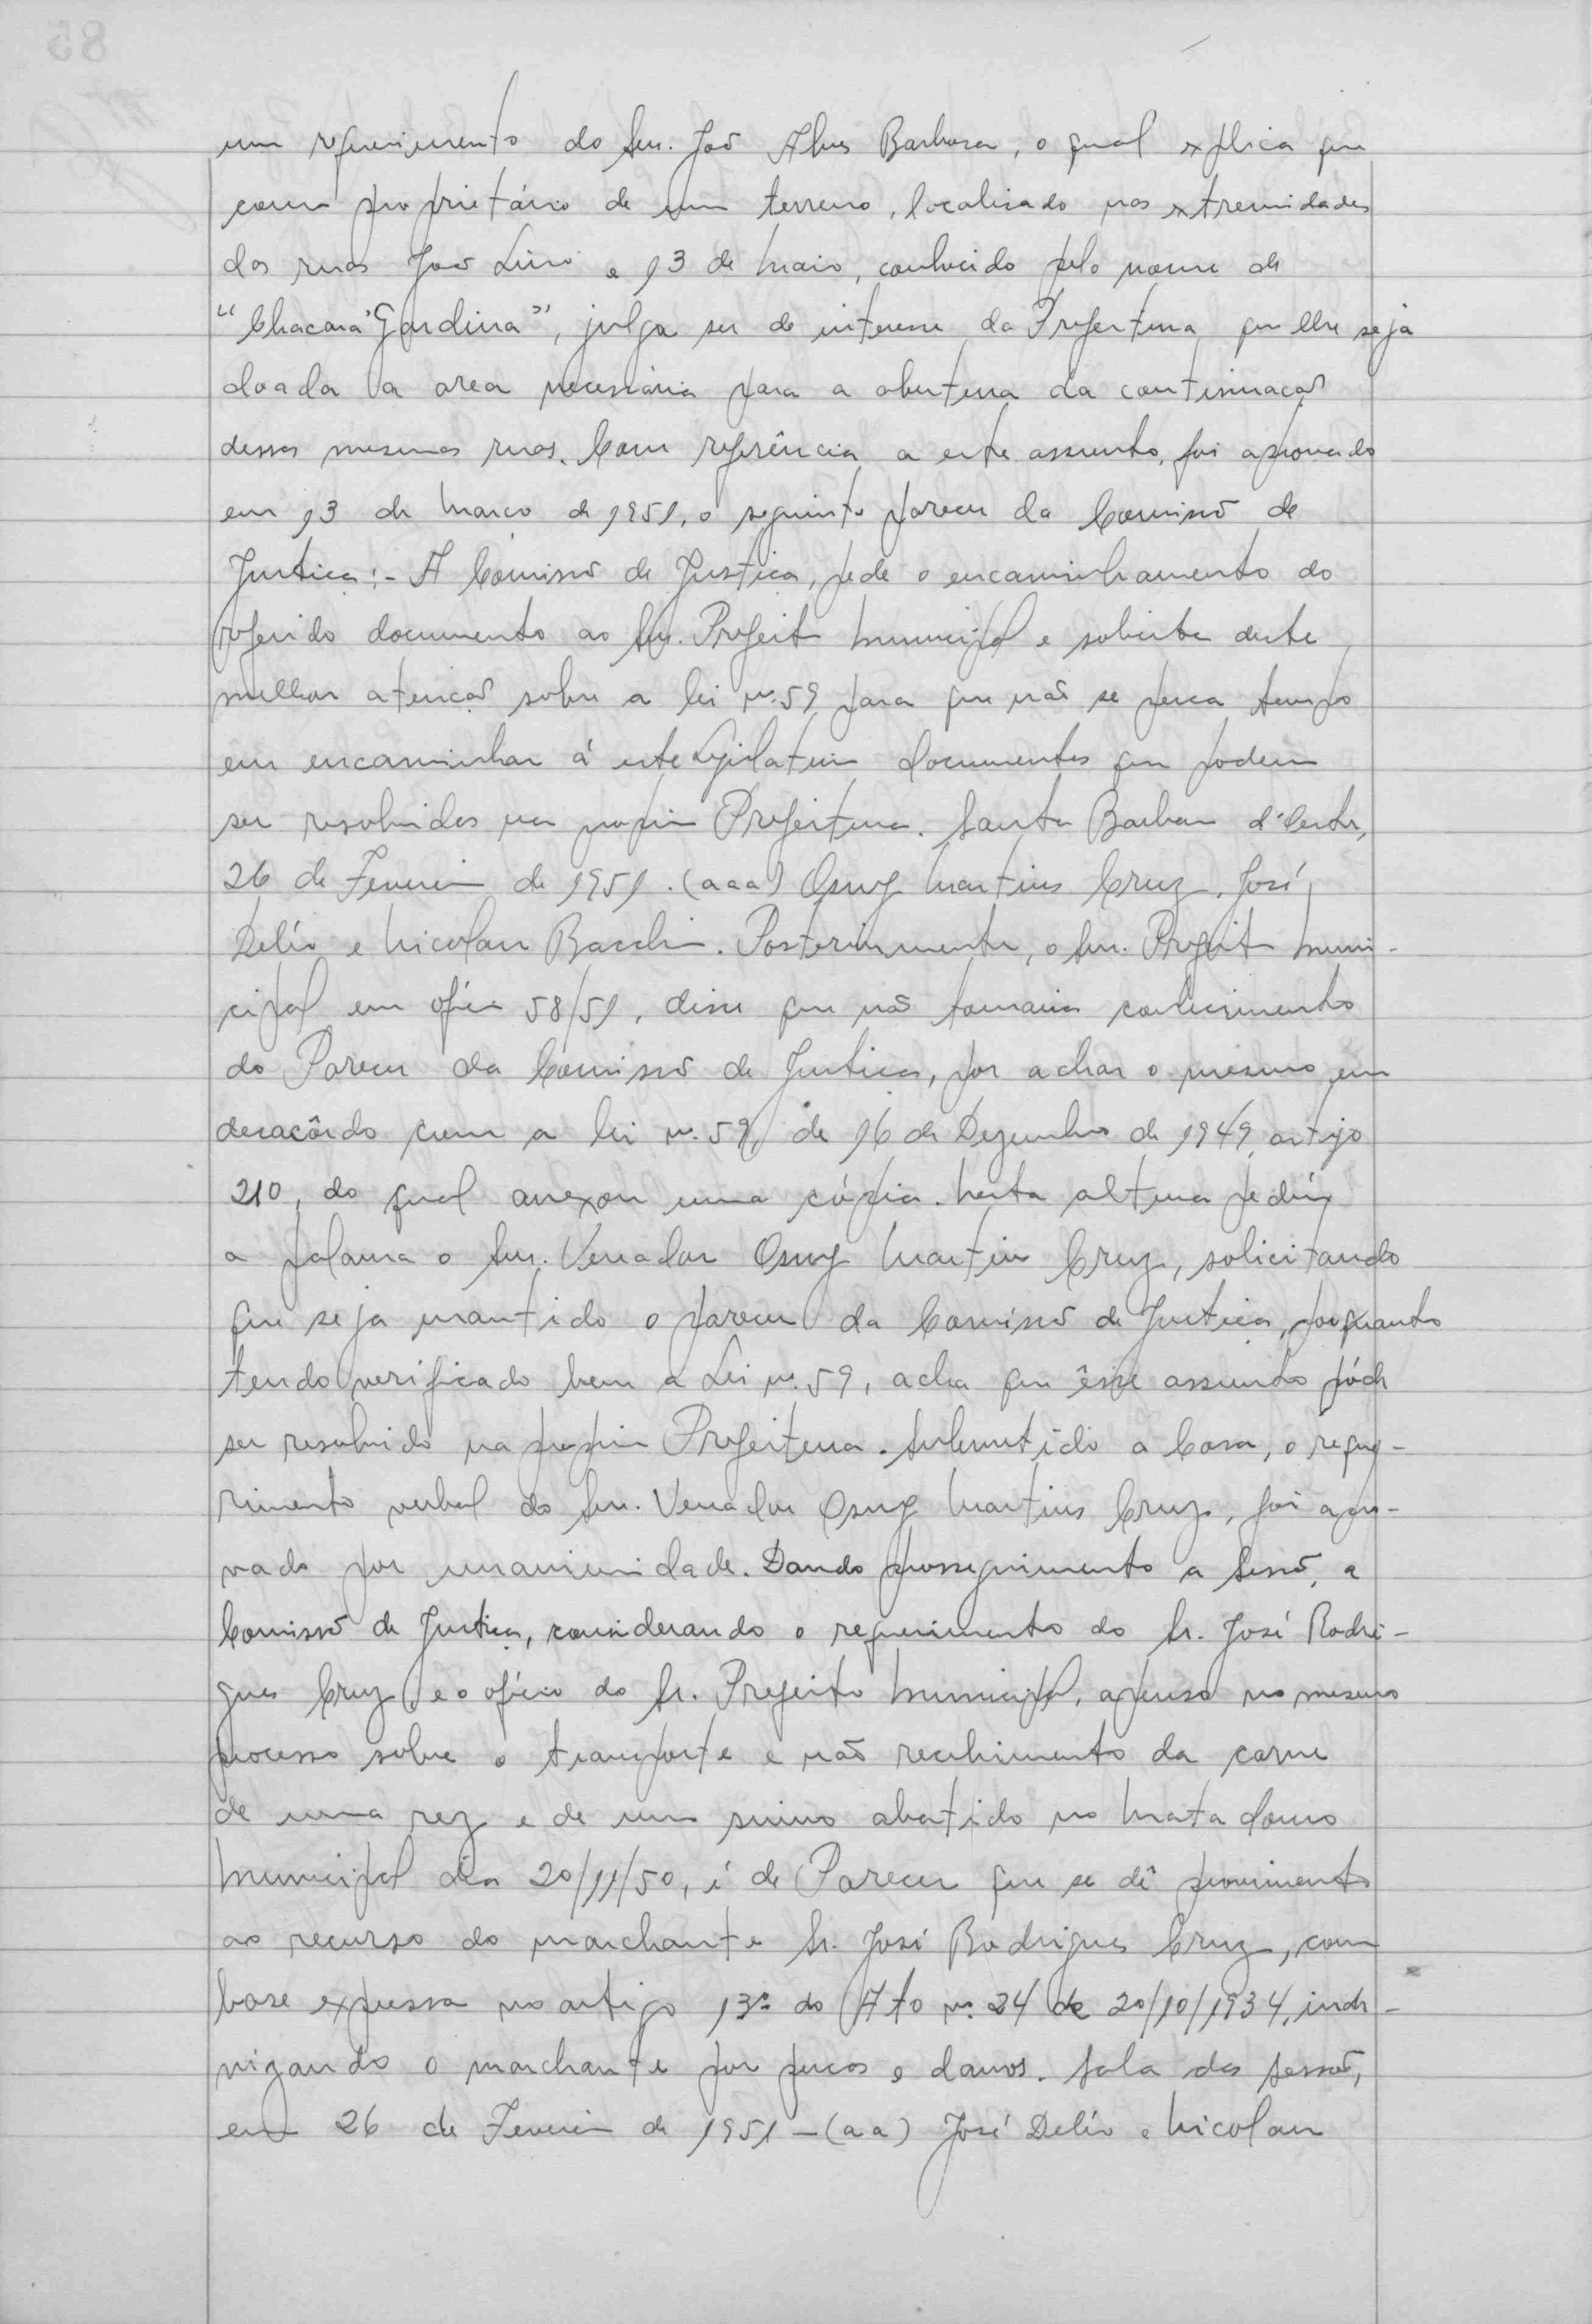 um requerimento do Snr. João Alves Barbosa, o qual explica que
como proprietário de um terreno, localisado nas extremidades
das ruas João Lino e 13 de Maio, conhecido pelo nome de
"Chacara Gardina", julga ser de interesse da Prefeitura que lhe seja
doada a area necessária para a abertura da continuação
dessas mesmas ruas. Com referência a este assunto, foi aprovado
em 13 de Março de 1951, o seguinte parecer da Comissão de
Justiça:- A Comissão de Justiça, pede o encaminhamento do
referido documento ao Snr. Prefeito Municipal e solicita deste
melhor atenção sobre a lei nº. 59 para que não se perca tempo
em encaminhar á este Legislativo documentos que podem
ser resolvidos na propria Prefeitura. Santa Barbara d'Oeste,
26 de Fevereiro de 1951. (aaa) Osny Martins Cruz, José
Delío e Nicolau Bacchin. Posteriormente, o Snr. Prefeito Muni-
cipal em ofício 58/51, disse que não tomaria conhecimento
do Parecer da Comissão de Justiça, por achar o mesmo em
desacôrdo com a lei nº. 59, de 16 de Dezembro de 1949, artigo
210, do qual anexou uma cópia. Nesta altura pediu
a palavra o Snr. Vereador Osny Martins Cruz, solicitando
que seja mantido o parecer da Comissão de Justiça, porquanto
tendo verificado bem a Lei nº. 59, acha que êsse assunto póde
ser resolvido na propria Prefeitura. Submetido a Casa, o reque-
rimento verbal do Snr. Vereador Osny Martins Cruz, foi apro-
vado por unanimidade. Dando prosseguimento a Sessão, a
Comissão de Justiça, considerando o requerimento do Sr. José Rodri-
gues Cruz e o ofício do Sr. Prefeito Municipal, apenso no mesmo
processo sobre o transporte e não recebimento da carne
de uma rez e de um suino abatido no Matadouro
Municipal dia 20/11/50, é de Parecer que se dê provimento
ao recurso do marchante Sr. José Rodrigues Cruz, com
base expressa no artigo 13º do Ato nº. 24 de 20/10/1934, inde-
nizando o marchante por percas e danos. Sala das Sessões,
em 26 de Fevereiro de 1951 - (aa) José Delío e Nicolau